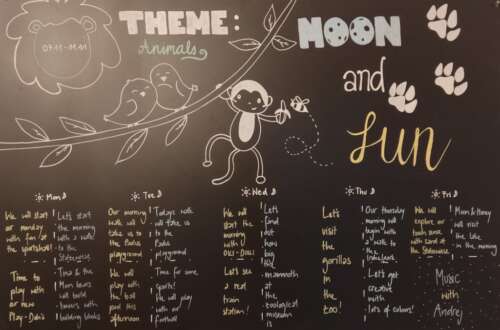 07.11-11.11
THEME:
Animals
MOON
and
Sun
Mon
We will start
our monday
with fun at
the sportshall!
Let's start
the morning
with a walk
to the
Time to
play with
our new
Play-Doh's
Time & the
Moon bears
will build
towers with
building blocks
Tue
Our morning
walk will
take us to
the Panda
playground
Todays walk
will take us
to the
Panda
playground
We will
play with
the ball
pool this
afternoon
Time for some
sports!
We will play
with our
football
Wed
We will
start the
morning
with
Let's
find
out
how
big
the
Let's see
a real
train
station!
mammoth
at
the
zoological
museum
is!
Thu
Let's
visit
the
gorillas
in
the
zoo!
Our thursday
morning will
begin with
a walk to
the
Let's get
creative
with
lots of colors!
Fri
We will
explore or
touch some
with sand at
the
Moon & Honey
will visit
the lake
in the morning
Music
with
Andrej